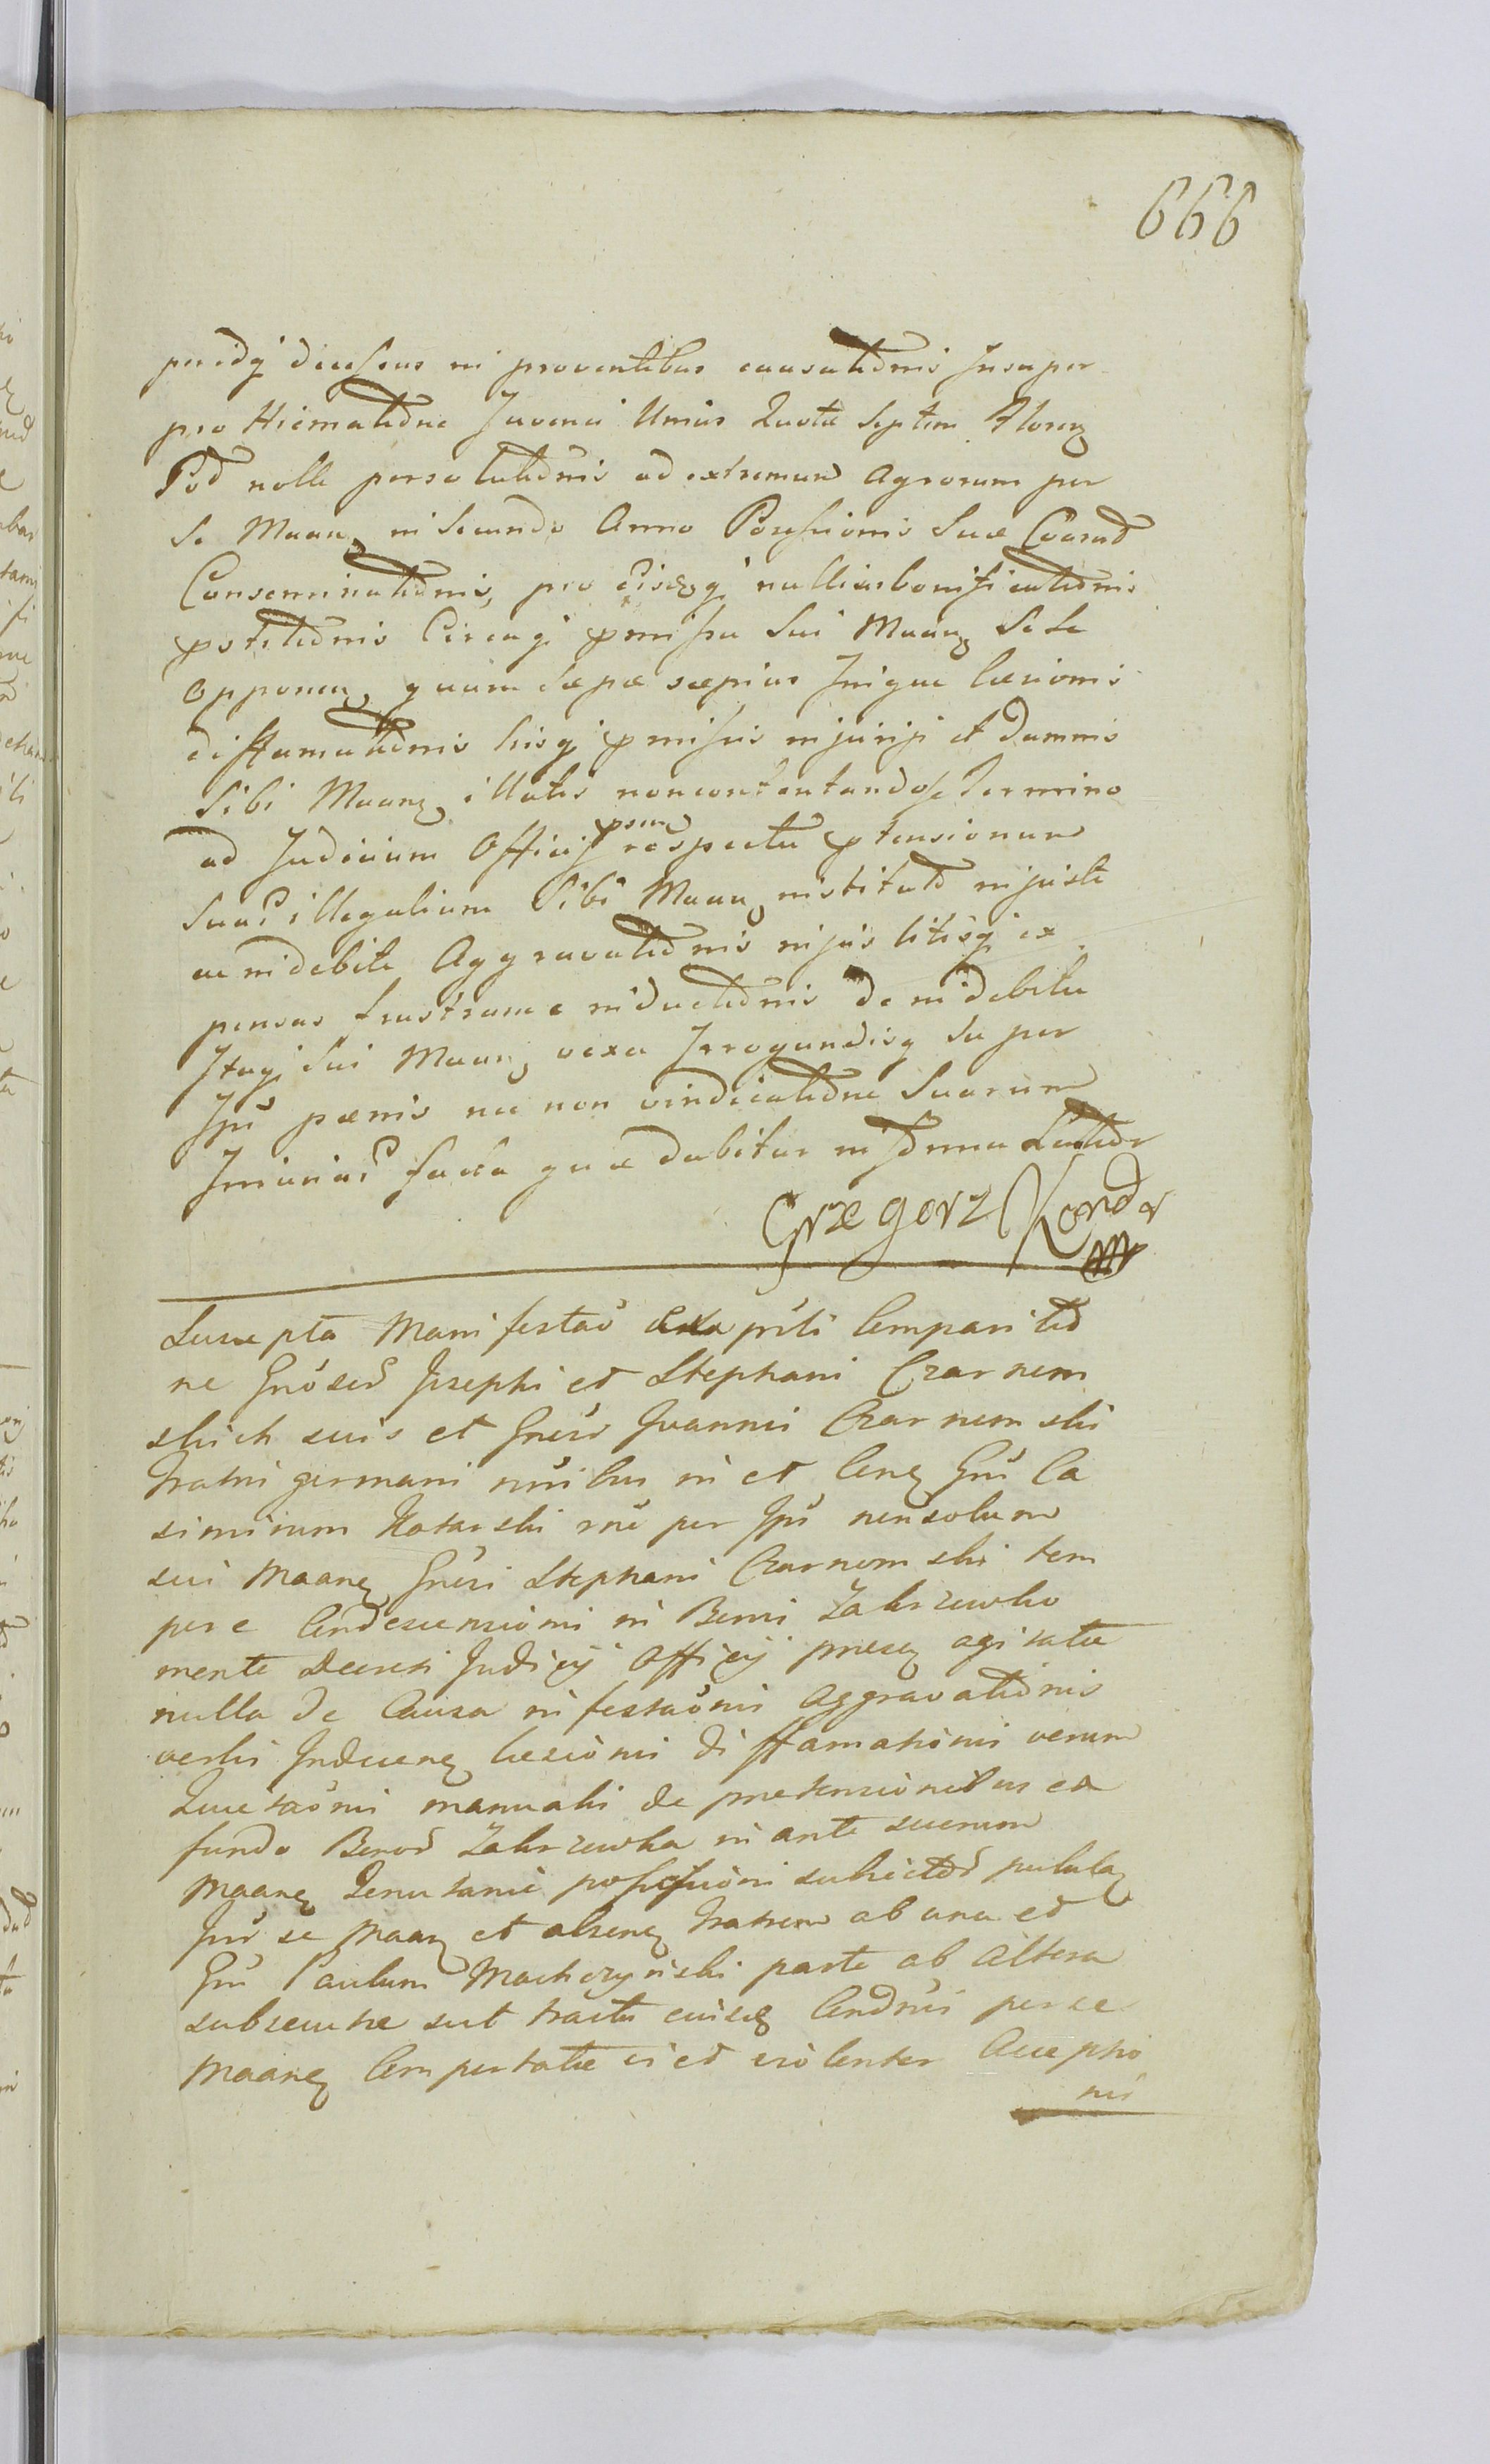 666
per idq diecesus in proventibus causationis Insuper
pro Hiematione Juvenci Unius Quota Septem Floren
Pol nolle persolutionis ad extremum Agrorum per
Se Maan in Secundo Anno Possessionis Suæ
Conseminationis, pro eisdq nulliusbonificationis
Circaq pmissa Sui Maan Sese
Opponen, quum sæpæ sæpius Inique læsionis
diffamationis hisq pmissis injurijs et damnis
Sibi Maan illatis noncontentandose Termino
ad Judicium Officij psens respectu ptensionum
Suar illegalium Sibi Maan institut injuste
ac indebite Aggravationis injus litisq ex
pensas frustranee inductionis de indebita
Itaq Sui Maan vexa Irrogandisq super
Ipũ pænis nec non vindicatione Suarum
Iniuriar facta quæ dabitur in forma Latior
Grzegorz Konder
mp
Suscepta Manifestaõ exa pñti Comparitio
ne Gnõsor Josephi et Stephani Czarnom
skich suis et Gnẽsi Joannis Czarnomski
Fratris germani nñibus in et Conq Gñ Ca
simirum Kotarski rnẽ per Ipũ nonsolum
sui Maanq Gnẽsi Stephani Czarnomski tem
pore Condescensionis in Bonis Zakrzewko
mente Decreti Judicij Officij presq agitatæ
nulla de Causa infestaõnis Aggravationis
verbis Inducenq læsionis diffamationis verum
Quietaõnis manualis de pretensionibus ex
fundo Bonor Zakrzewka in ante suorum
Maanq Tenutariæ possessioni subiector pululaq
Inr se Maanq et absenq Fratrem ab una et
Gñ Paulum Machczyński parte ab altera
subsecutæ sub tractu eiusdq Condnis per se
Maanq Comportatæ vi et violenter Acceptio
nis